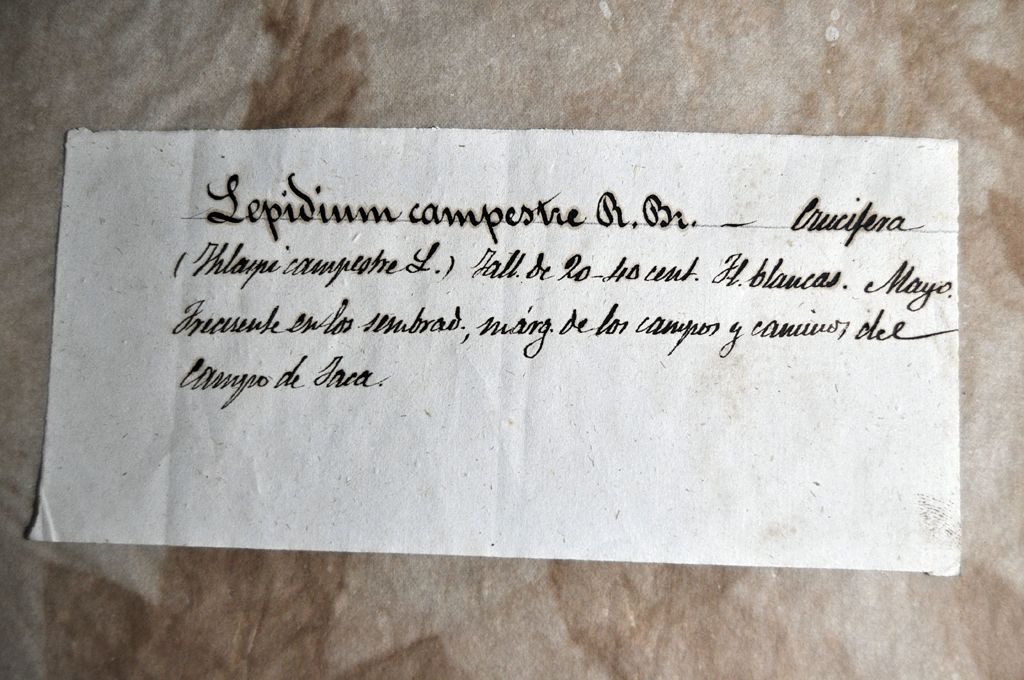 Lepidium campestre R. Br. — Crucifera
(Thlaspi campestre L.) Tall. de 20-40 cent. Fl. blancas. Mayo.
Frecuente en los sembrad., márg. de los campos y caminos del
Campo de Jaca.